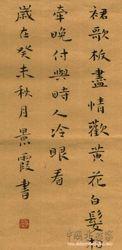 裙歌板盡情歡黄花白髮相
牽晚付與時人冷眼看
歲在癸未秋月景霞書